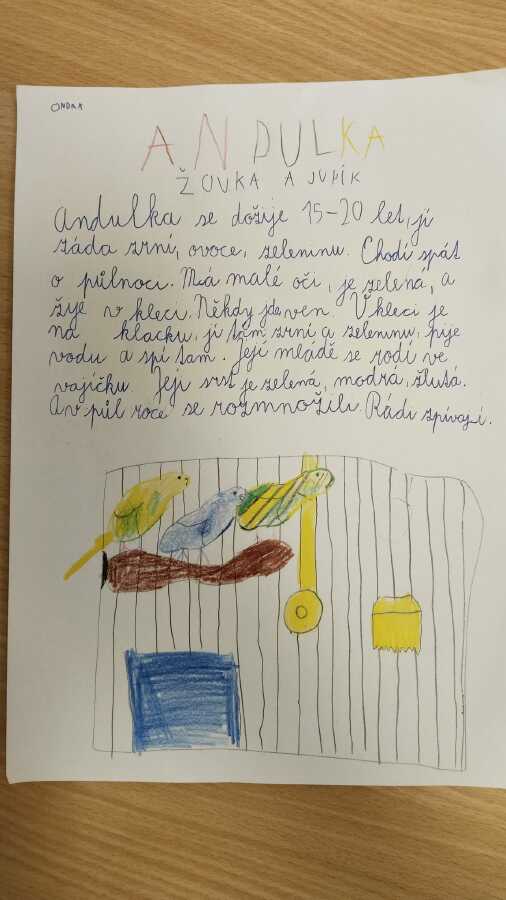 ONDRA
ANDULKA
ŽOVKA A JUPÍK
Andulka se dožije 15-20 let, jí
ráda zrní, ovoce, zeleninu. Chodí spát
o půlnoci. Má malé oči, je zelená, a
žije v kleci. Někdy jde ven. V kleci je
na klacku, jí tam zrní a zeleninu, pije
vodu a spí tam. Její mládě se rodí ve
vajíčku. Její srst je zelená, modrá, žlutá.
A v půl roce se rozmnožili. Rádi zpívají.